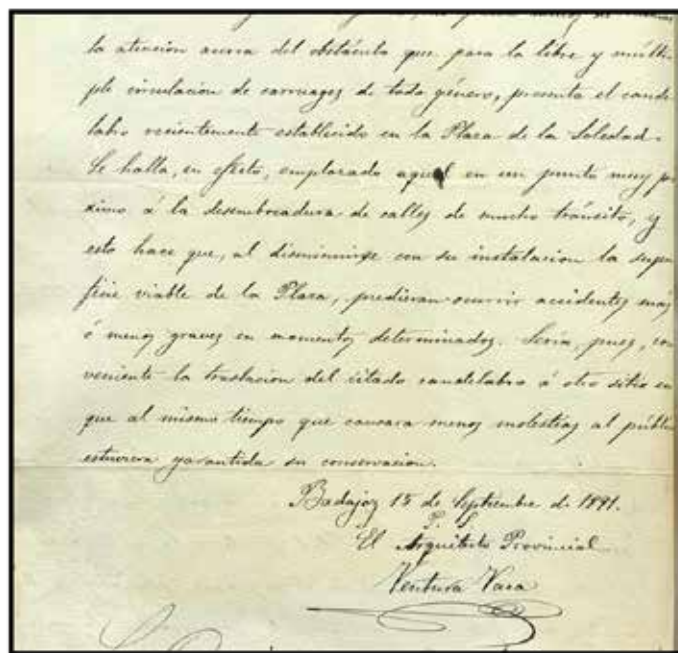 la atencion acerca del obstáculo que para la libre y múlti
ple circulacion de carruages de todo género, presenta el cande
labro recientemente establecido en la Plaza de la Soledad.
Se halla, en efecto, emplazado aquel en un punto muy pró
ximo á la desembocadura de calles de mucho tránsito, y
esto hace que, al disminuirse con su instalacion la super
ficie viable de la Plaza, pudieran ocurrir accidentes más
ó menos graves en momentos determinados. Sería, pues, con
veniente la traslacion del citado candelabro á otro sitio en
que al mismo tiempo que causara menos molestias al públi
estuviera garantida su conservacion.
Badajoz 15 de Septiembre de 1891.
El Arquitecto Provincial
Ventura Vaca